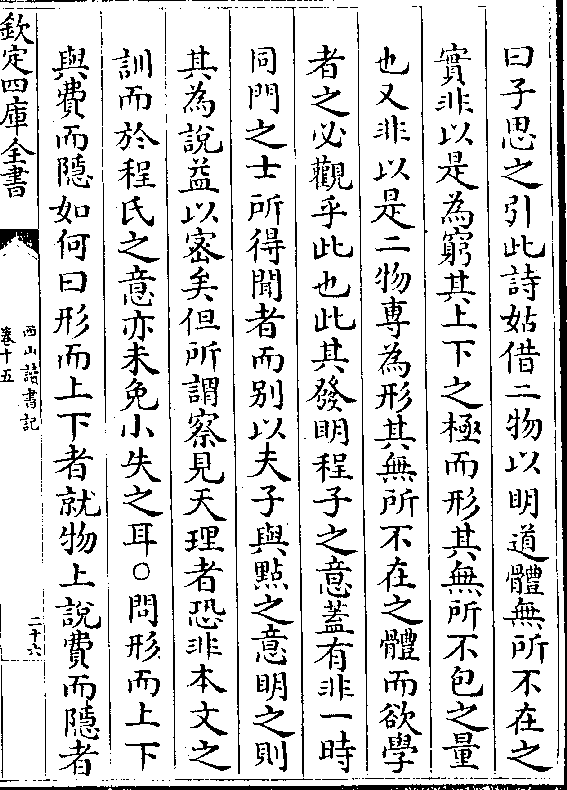 曰子思之引此詩姑借二物以明道體無所不在之
實非以是為窮其上下之極而形其無所不包之量
也又非以是二物專為形其無所不在之體而欲學
者之必觀乎此也此其發明程子之意蓋有非一時
同門之士所得聞者而别以夫子與點之意明之則
其為說益以宻矣但所謂察見天理者恐非本文之
訓而於程氏之意亦未免小失之耳○問形而上下
與費而隱如何曰形而上下者就物上說費而隱者
欽定四庫全書
西山讀書記
卷十五
二十六